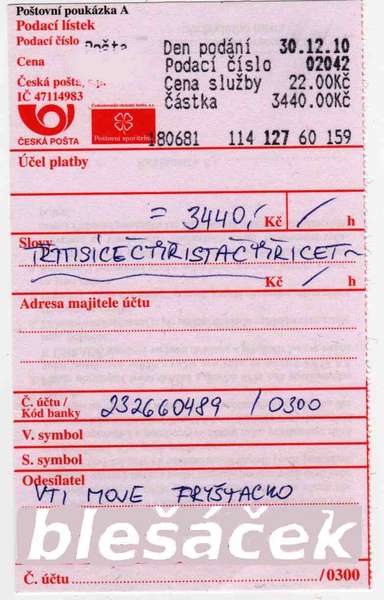 Poštovní poukázka A
Podací lístek
Podací číslo Pošta Den podání 30.12.10
Cena Podací číslo 02042
Česká pošta, s.p. Cena služby 22.00Kč
IČ 47114983 Částka 3440.00Kč
ČESKÁ POŠTA Poštovní spořitelna 180681 114 127 60 159
Účel platby
= 3440,- Kč / h
Slovy
TŘITISÍCEČTYŘISTAČTYŘICET~
Kč / h
Adresa majitele účtu
Č. účtu /
Kód banky 232660489 / 0300
V. symbol
S. symbol
Odesílatel
VTI MOVE FRYŠTACKO
blešáček
Č. účtu / 0300